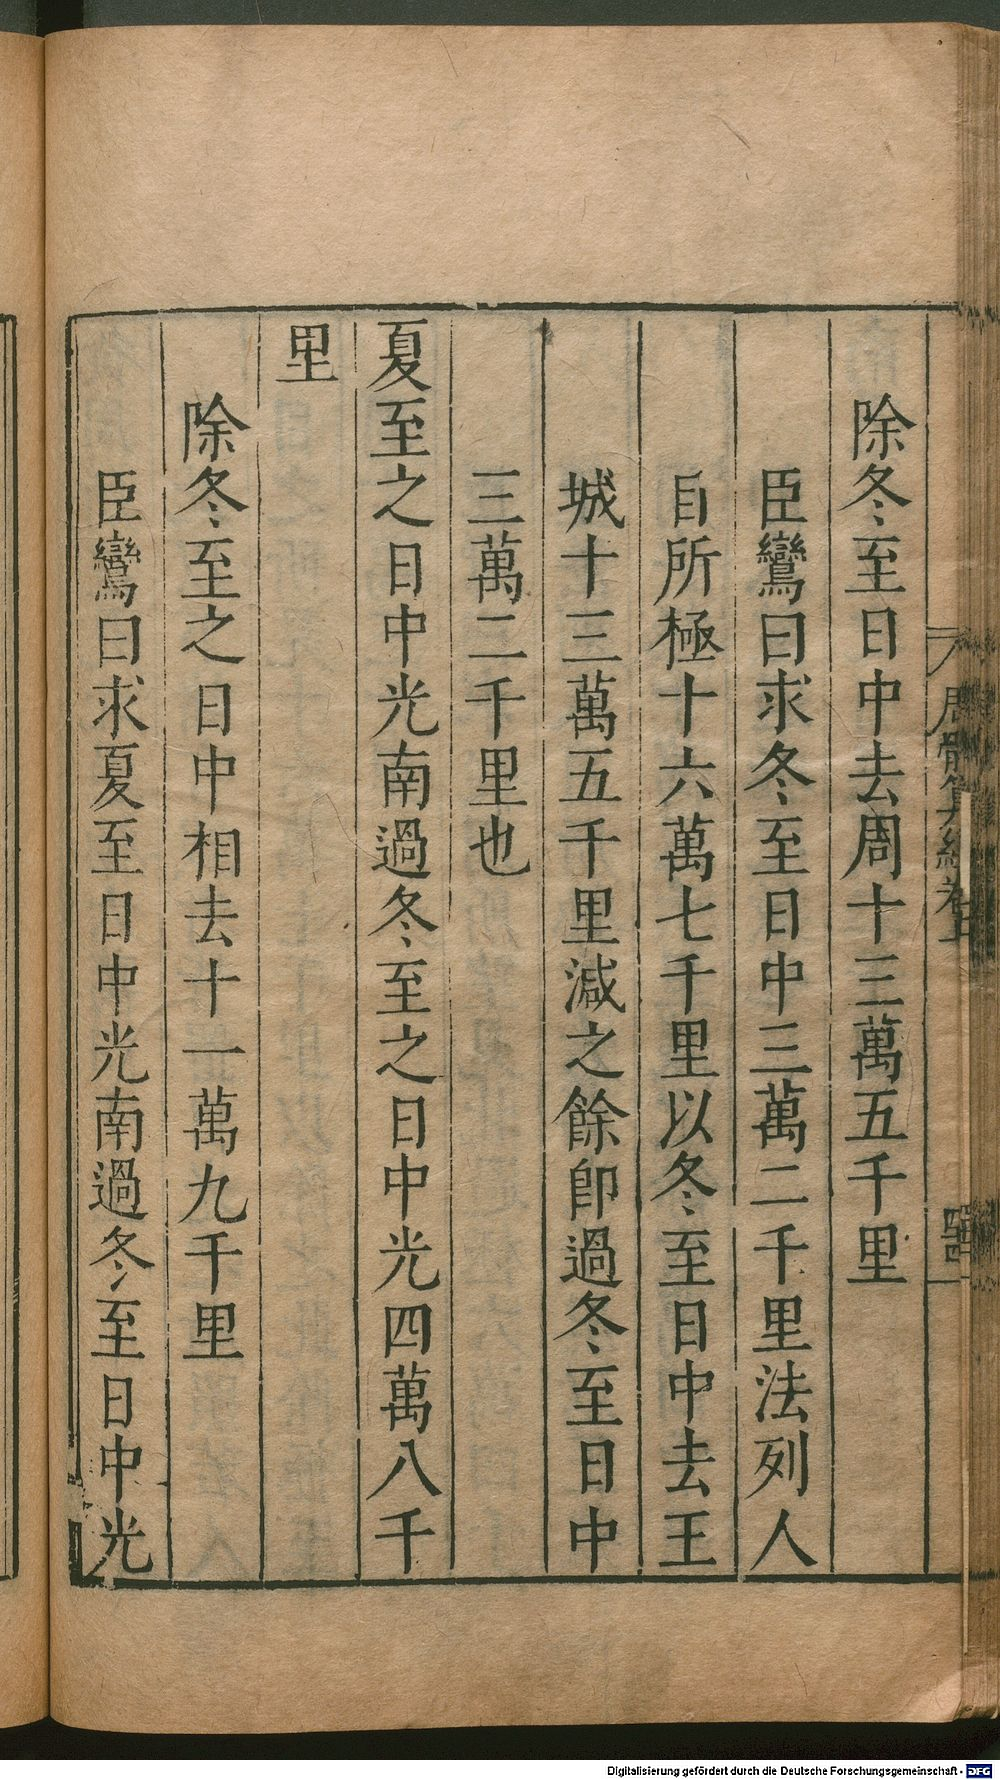 周髀算經卷上
除冬至日中去周十三萬五千里
臣鸞曰求冬至日中三萬二千里法列人
目所極十六萬七千里以冬至日中去王
城十三萬五千里減之餘卽過冬至日中
三萬二千里也
夏至之日中光南過冬至之日中光四萬八千
里
除冬至之日中相去十一萬九千里
臣鸞曰求夏至日中光南過冬至日中光
Digitalisierung gefördert durch die Deutsche Forschungsgemeinschaft - DFG